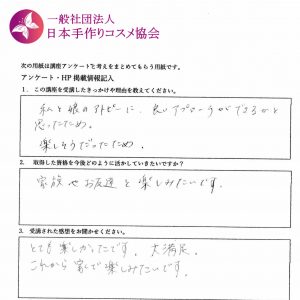 一般社団法人
日本手作りコスメ協会
次の用紙は講座アンケートと考えをまとめてもらう用紙です。
アンケート・HP 掲載情報記入
1. この講座を受講したきっかけや理由を教えてください。
私と娘のアトピーに、良いアプローチができるかと
思ったため。
楽しそうだったため。
2. 取得した資格を今後どのように活かしていきたいですか?
家族やお友達と楽しみたいです。
3. 受講された感想をお聞かせください。
とても楽しかったです。大満足。
これから家で楽しみたいです。